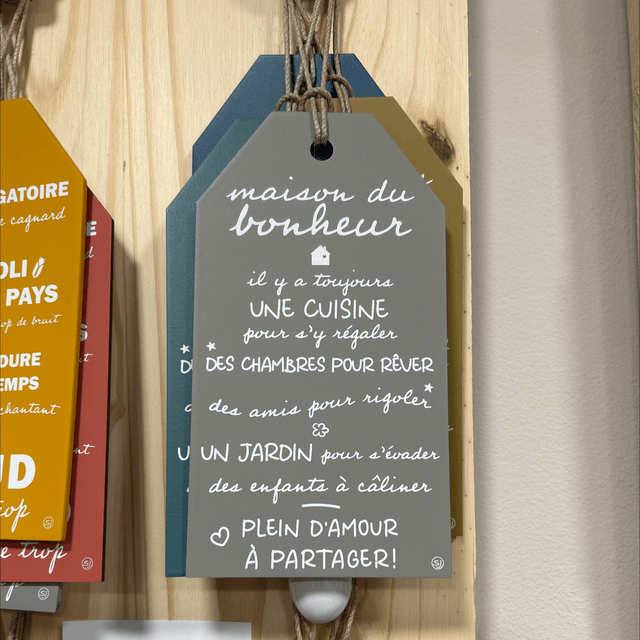 GATOIRE
cagnard
OLI
PAYS
op de bruit
DURE
EMPS
chantant
UD
top
E
S
e trop
maison du
bonheur
il y a toujours
UNE CUISINE
pour s'y régaler
DES CHAMBRES POUR RÊVER
des amis pour rigoler
UN JARDIN pour s'évader
des enfants à câliner
PLEIN D'AMOUR
À PARTAGER!